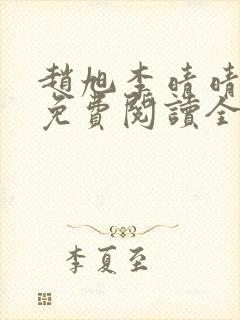 趙旭李晴晴
免費閱讀全
李夏至